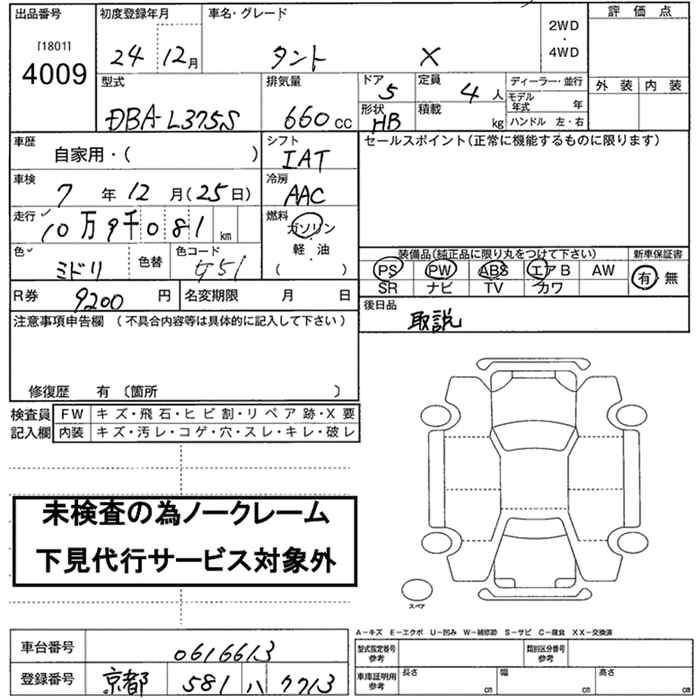 出品番号 初度登録年月 車名・グレード 評価点
[1801]
4009
24 12月 タント X 2WD・4WD
外装 内装
型式 排気量 ドア 5 定員 4人 ディーラー・並行
モデル年式 年
DBA-L375S 660cc 形状 HB 積載 kg ハンドル 左・右
車歴 自家用・( ) シフト IAT セールスポイント(正常に機能するものに限ります)
車検 7年12月(25日) 冷房 AAC
走行 10万9千081km 燃料 ガソリン・軽油
( )
色 ミドリ 色替 色コード
装備品(純正品に限り丸をつけて下さい) 新車保証書
PS PW ABS エアB AW 有・無
SR ナビ TV カワ
R券 9200円 名変期限 月 日
後日品 取説
注意事項申告欄 (不具合内容等は具体的に記入して下さい)
修復歴 有 (箇所 )
検査員記入欄 FW キズ・飛石・ヒビ割・リペア跡・X要
内装 キズ・汚レ・コゲ・穴・スレ・キレ・破レ
未検査の為ノークレーム
下見代行サービス対象外
スペア
A-キズ E-エクボ U-凹み W-補修跡 S-サビ C-腐食 XX-交換済
車台番号 0616613
型式指定番号 参考 類別区分番号 参考
登録番号 京都 581 ハ 7713
車庫証明用 参考 長さ cm 幅 cm 高さ cm